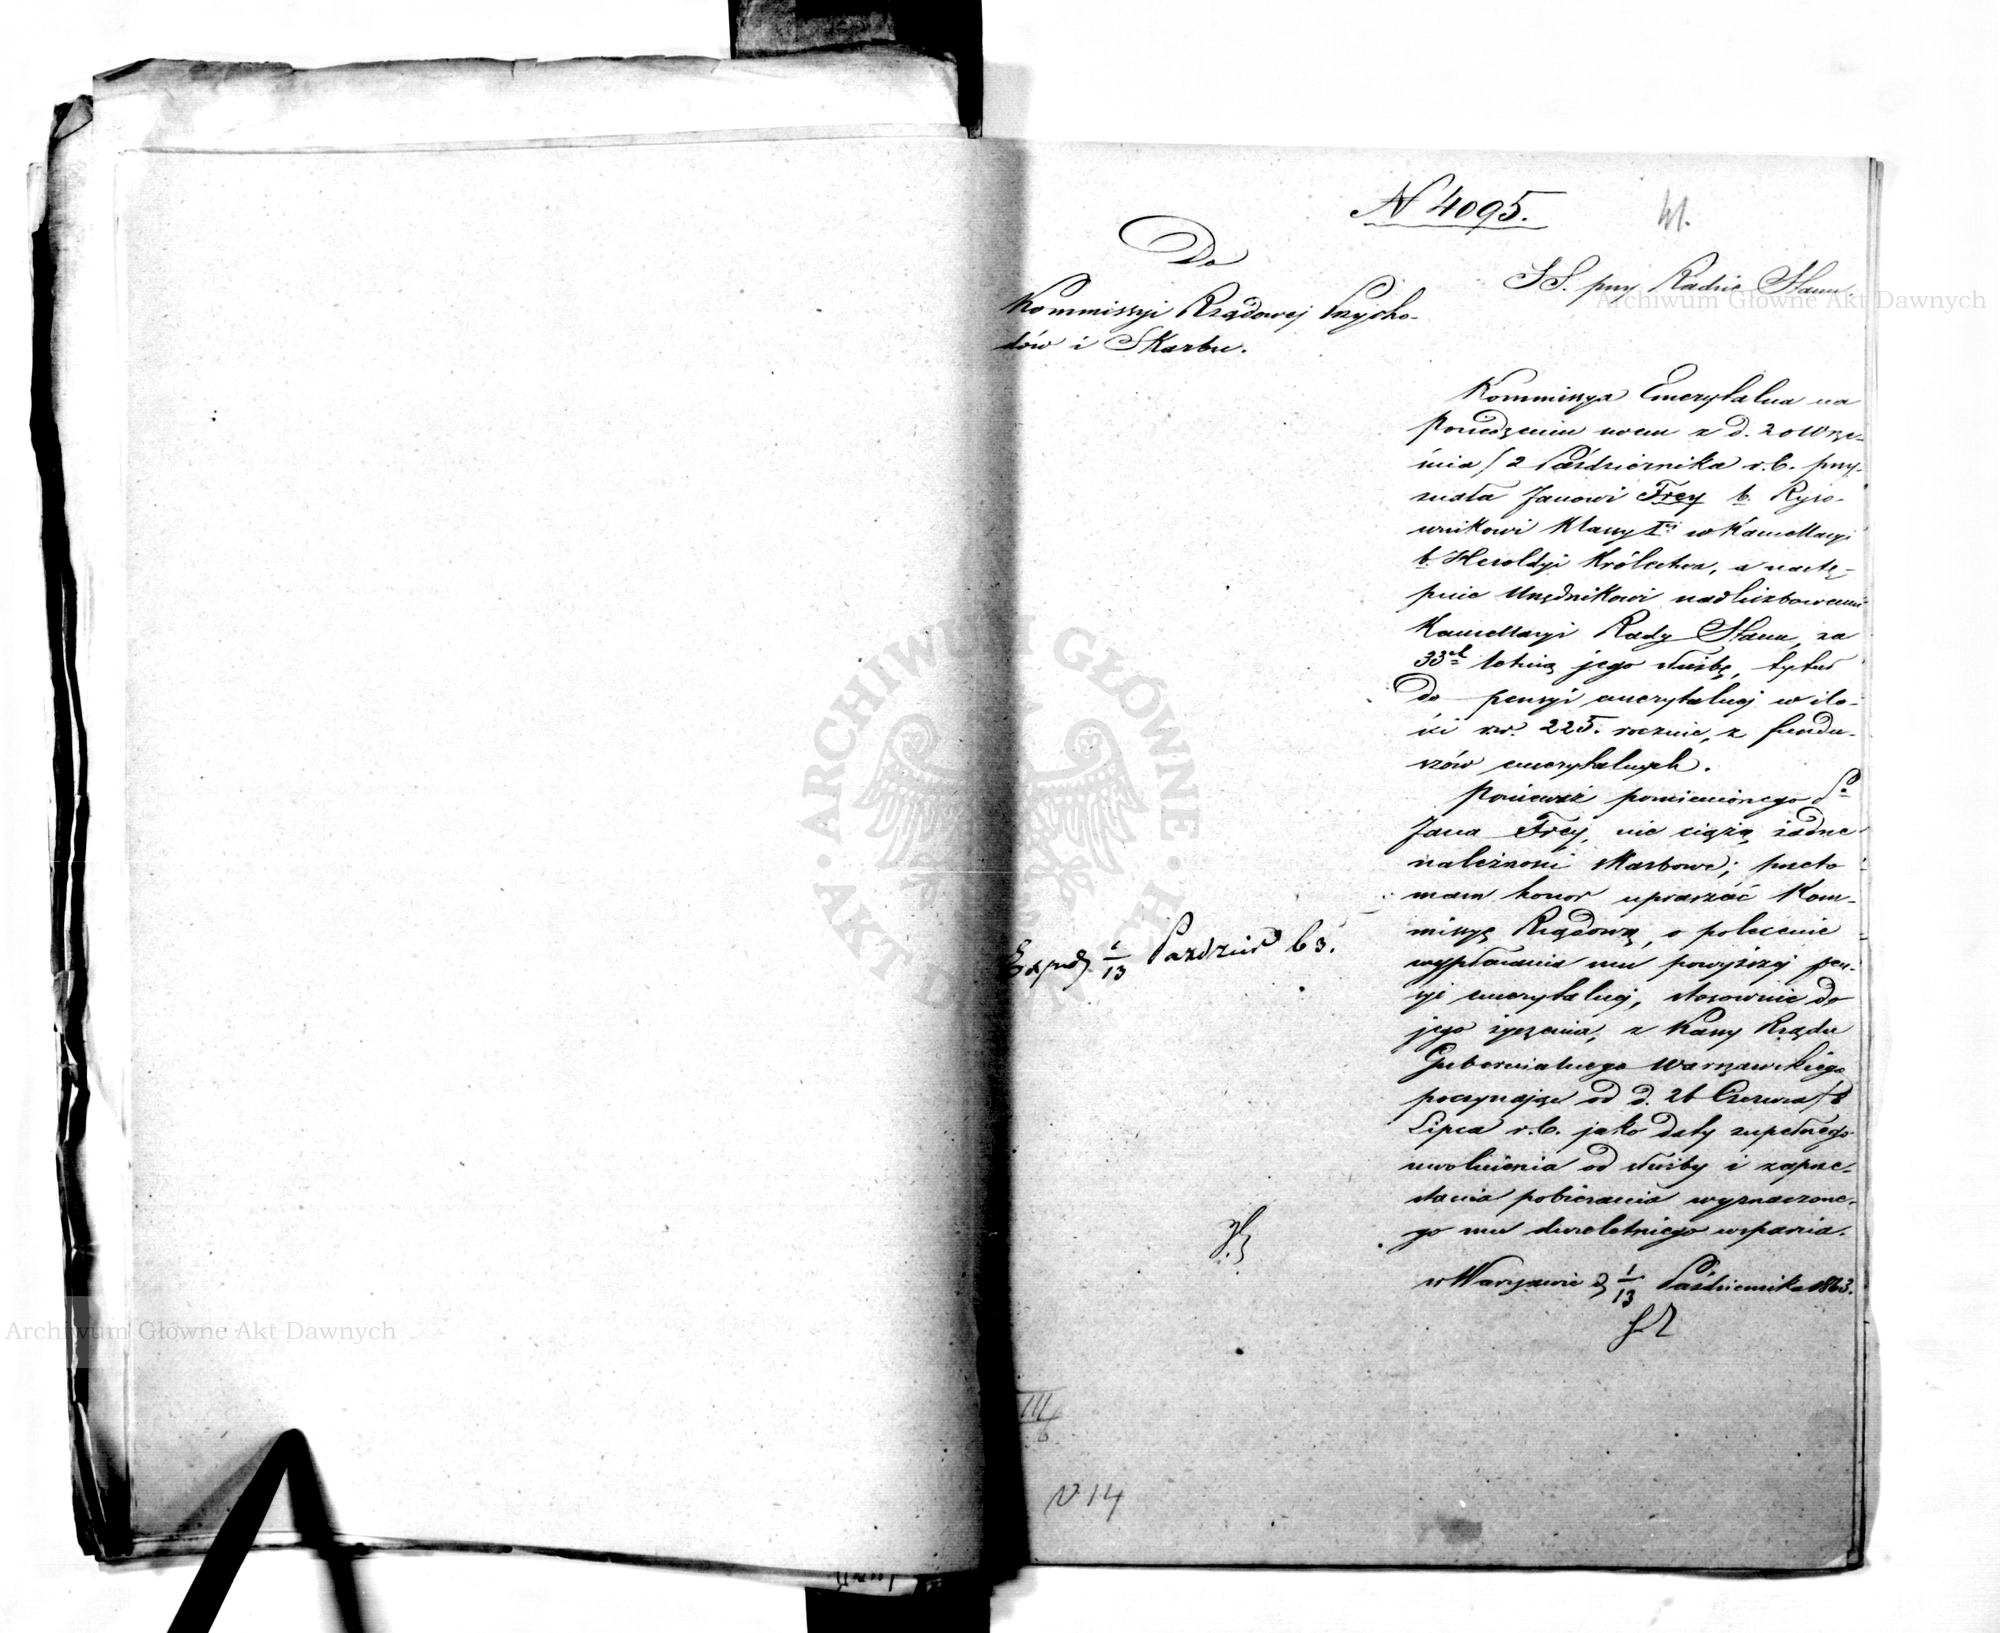 N 4095.
41.
Do
Kommissyi Rządowej Przycho-
dów i Skarbu.
SS. przy Radzie Stanu
Kommissya Emerytalna na
Posiedzeniu swem z d. 20 Wrze-
śnia / 2 Października r.b. przy-
znała Janowi Frey b. Ryso-
wnikowi Klassy I ej w Kancellaryi
b. Heroldyi Królestwa, a nastę-
pnie Urzędnikowi nadliczbowemu
Kancellaryi Rady Stanu, za
33 letnią jego służbę, tytuł
do pensyi emerytalnej w ilo-
ści rsr. 225. rocznie, z fundu-
szów emerytalnych.
Ponieważ pomienionego Po
Jana Frey, nie ciążą żadne
należności skarbowe; przeto
mam honor upraszać Kom-
missyę Rządową, o polecenie
wypłacania mu powyższej pen-
syi emerytalnej, stosownie do
jego życzenia, z Kassy Rządu
Gubernialnego Warszawskiego
poczynając od d. 26 Czerwca / 8
Lipca r.b. jako daty zupełnego
uwolnienia od służby i zaprze-
stania pobierania wyznaczone-
go mu dwuletniego wsparcia.
w Warszawie d 1/13 Października 1863.
Exped 1/13 Paździer 63.
III/6
N 14
ARCHIWUM GŁÓWNE AKT DAWNYCH
Archiwum Główne Akt Dawnych
Archiwum Główne Akt Dawnych